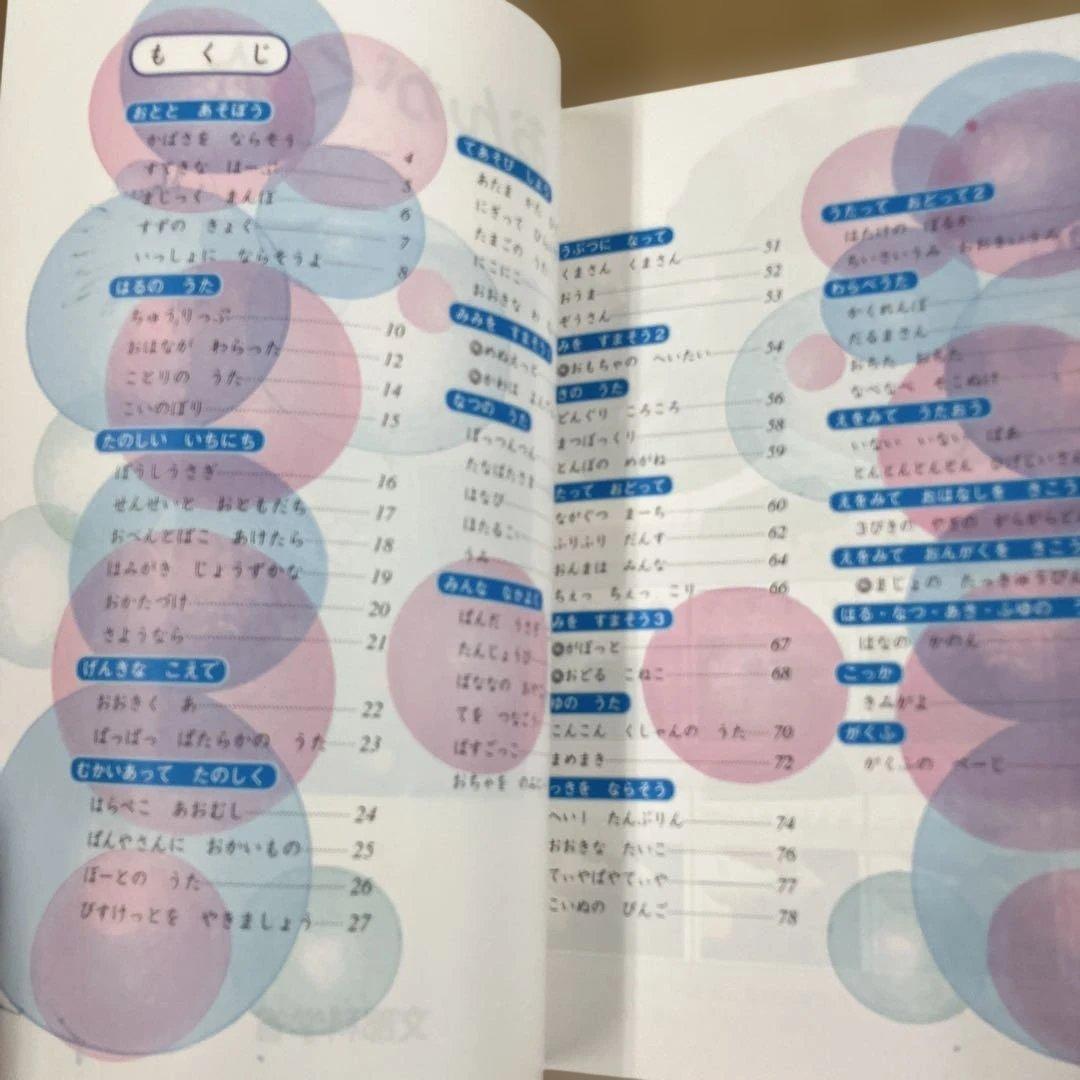 もくじ
おとと あそぼう
かばさを ならそう 4
すてきな はーぷ 5
まじっく まんぼ 6
すずの きょく 7
いっしょに ならそうよ 8
はるの うた
ちゅうりっぷ 10
おはなが わらった 12
ことりの うた 14
こいのぼり 15
たのしい いちにち
ぼうしうさぎ 16
せんせいと おともだち 17
おべんとばこ あけたら 18
はみがき じょうずかな 19
おかたづけ 20
さようなら 21
げんきな こえで
おおきく あ 22
ぱっぱっ ぱたらかの うた 23
むかいあって たのしく
はらぺこ あおむし 24
ぱんやさんに おかいもの 25
ぼーとの うた 26
びすけっとを やきましょう 27
てあそび
あたま かた
にぎって
たまごの うた
にこにこ
おおきな
みみを すまそう
めぬえっと
かわは
なつの うた
ぽっつんつん
たなばたさま
はなび
ほたるこい
うみ
みんな なかよく
ぱんだ うさぎ
たんじょうび
ばななの おやこ
てを つなごう
ばすごっこ
おちゃを のみに
うぶつに なって
くまさん くまさん 51
おうま 52
ぞうさん 53
みを すまそう2
おもちゃの へいたい 54
きの うた
どんぐり ころころ 56
まつぼっくり 58
とんぼの めがね 59
たって おどって
ながぐつ まーち 60
ふりふり だんす 62
おんまは みんな 64
ちぇっ ちぇっ こり 66
みを すまそう3
がぼっと 67
おどる こねこ 68
ゆの うた
こんこん くしゃんの うた 70
まめまき 72
っきを ならそう
へい! たんぶりん 74
おおきな たいこ 76
てぃやぱやてぃや 77
こいぬの びんご 78
うたって おどって2
はたけの ぽるか
ちいさいうみ おおきいうみ
わらべうた
かくれんぼ
だるまさん
おちた おちた
なべなべ そこぬけ
えをみて うたおう
いない いない ばあ
とんとんとんとん ひげじいさん
えをみて おはなしを きこう
3びきの やぎの がらがらどん
えをみて おんがくを きこう
まじょの たっきゅうびん
はる・なつ・あき・ふゆの
はなの かのん
こっか
きみがよ
がくふ
がくふの ぺーじ